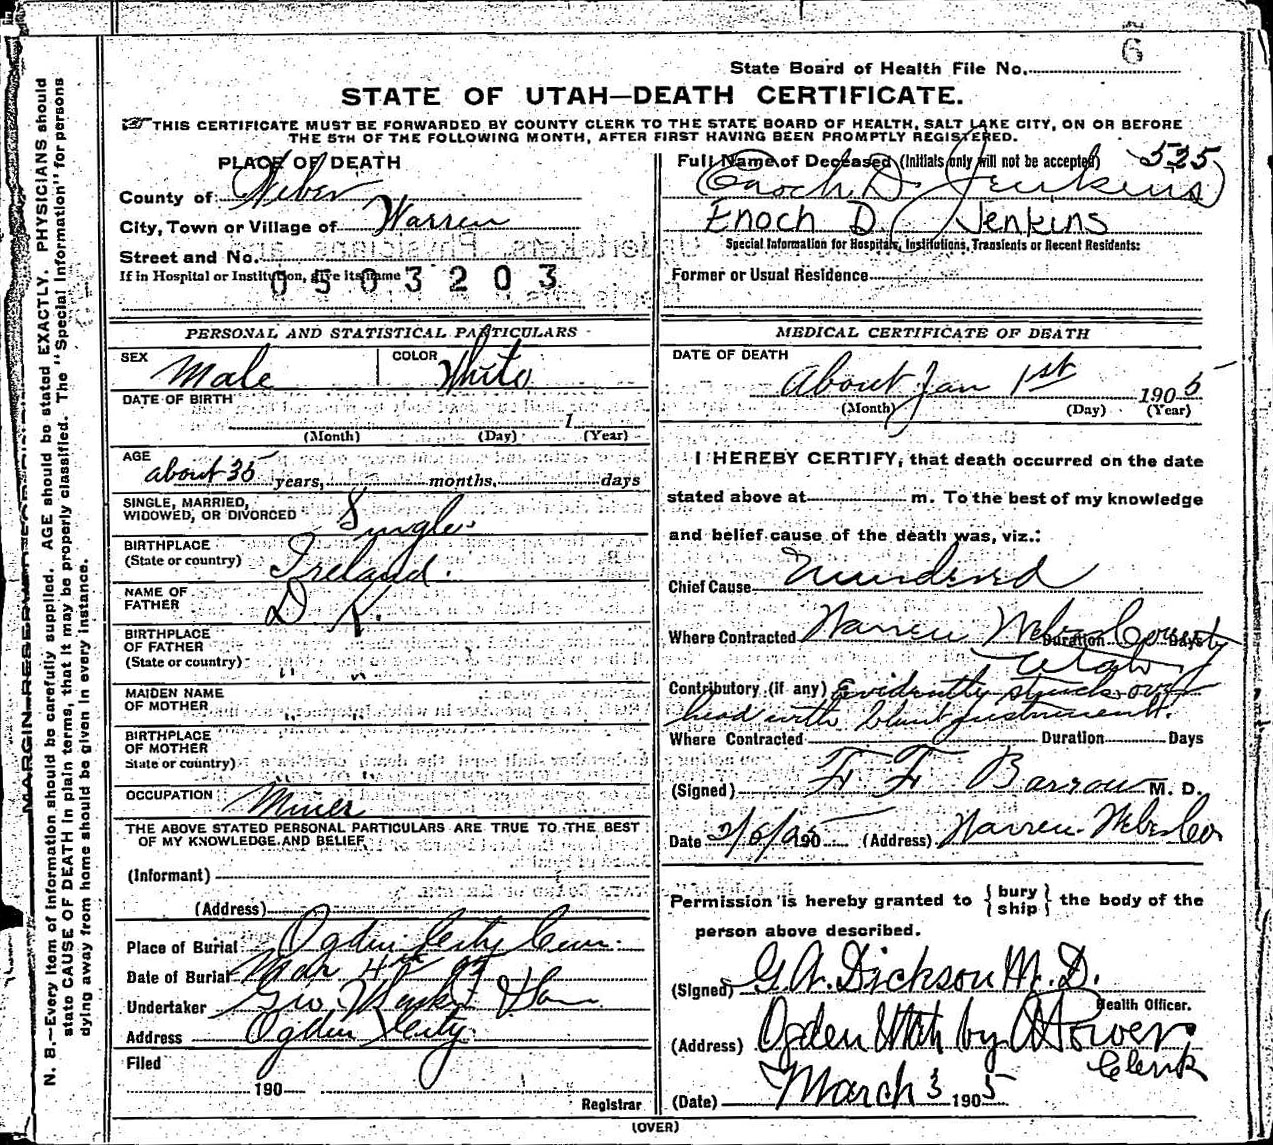 6
State Board of Health File No.
STATE OF UTAH—DEATH CERTIFICATE.
THIS CERTIFICATE MUST BE FORWARDED BY COUNTY CLERK TO THE STATE BOARD OF HEALTH, SALT LAKE CITY, ON OR BEFORE
THE 5TH OF THE FOLLOWING MONTH, AFTER FIRST HAVING BEEN PROMPTLY REGISTERED.
PLACE OF DEATH
County of Weber
City, Town or Village of Warren
Street and No.
If in Hospital or Institution, give its name
0503203
PERSONAL AND STATISTICAL PARTICULARS
SEX Male COLOR White
DATE OF BIRTH
1
(Month) (Day) (Year)
AGE
about 35 years, months, days
SINGLE, MARRIED,
WIDOWED, OR DIVORCED Single
BIRTHPLACE
(State or country) Ireland.
NAME OF
FATHER D. K.
BIRTHPLACE
OF FATHER
(State or country) " "
MAIDEN NAME
OF MOTHER " "
BIRTHPLACE
OF MOTHER
State or country) " "
OCCUPATION Miner
THE ABOVE STATED PERSONAL PARTICULARS ARE TRUE TO THE BEST
OF MY KNOWLEDGE AND BELIEF
(Informant)
(Address)
Place of Burial Ogden City Cem.
Date of Burial Mar 4th 05
Undertaker Geo.
Address Ogden City.
Filed
190
Registrar
Full Name of Deceased (Initials only will not be accepted) 525
Enoch D. Jenkins
Enoch D Jenkins
Special Information for Hospitals, Institutions, Transients or Recent Residents:
Former or Usual Residence
MEDICAL CERTIFICATE OF DEATH
DATE OF DEATH
About Jan 1st 1905
(Month) (Day) (Year)
I HEREBY CERTIFY, that death occurred on the date
stated above at m. To the best of my knowledge
and belief cause of the death was, viz.:
Chief Cause Murdered
Where Contracted Warren Weber County Duration Days
Utah
Contributory (if any) Evidently struck over
head with blunt instrument.
Where Contracted Duration Days
(Signed) F. F. Barrow M. D.
Date 190 (Address) Warren. Weber Co
Permission is hereby granted to { bury ship } the body of the
person above described.
(Signed) G. A. Dickson M. D.
Health Officer.
(Address) Ogden Utah by Power
Clerk
(Date) March 3 1905
(OVER)
MARGIN RESERVED FOR BINDING
N. B.—Every item of information should be carefully supplied. AGE should be stated EXACTLY. PHYSICIANS should
state CAUSE OF DEATH in plain terms, that it may be properly classified. The "Special Information" for persons
dying away from home should be given in every instance.